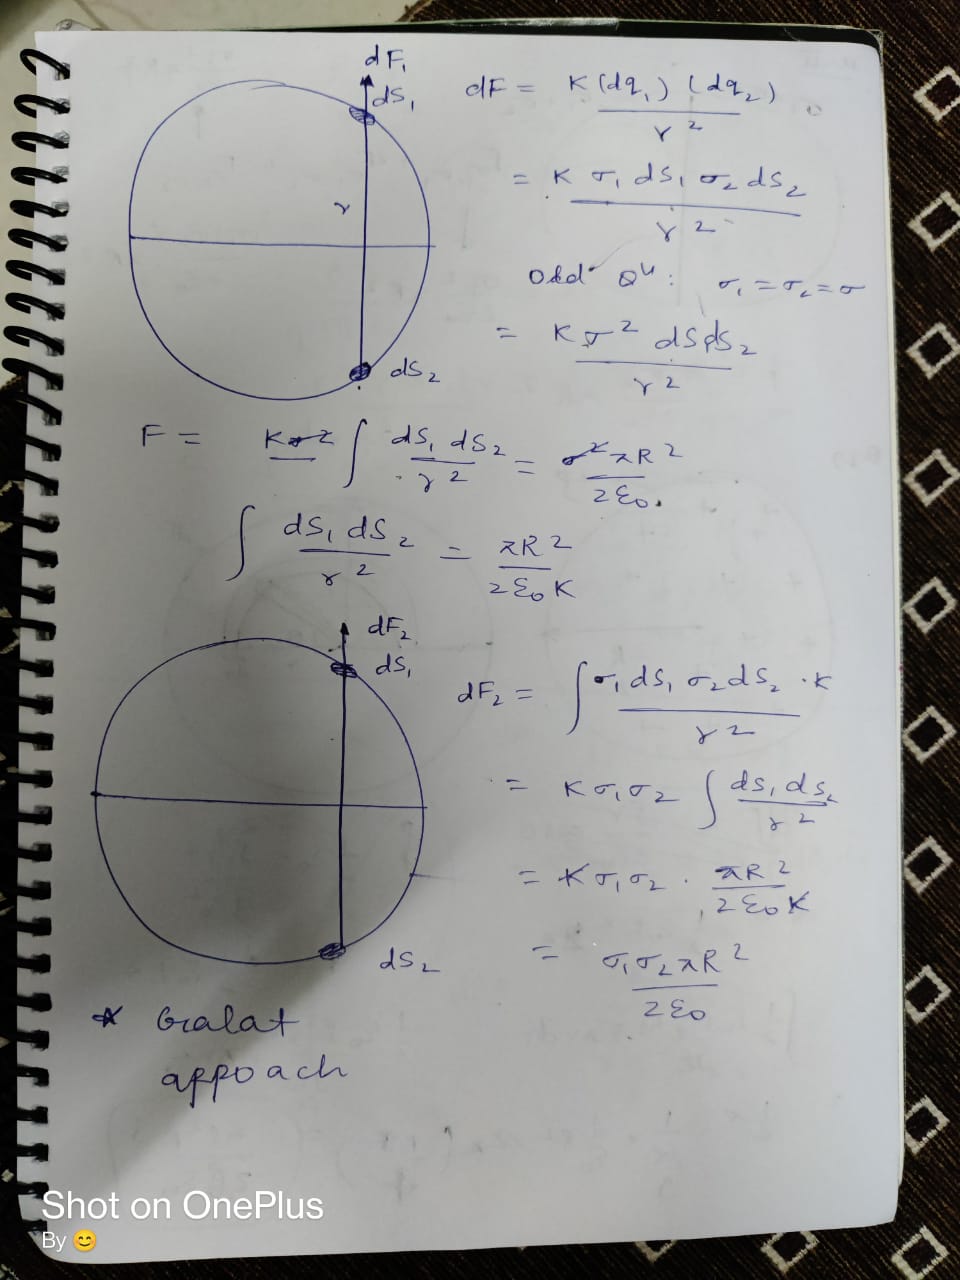 dF₁
dS₁
r
dS₂
dF = K (dq₁) (dq₂) / r²
= K σ₁ dS₁ σ₂ dS₂ / r²
Old Qⁿ : σ₁ = σ₂ = σ
= K σ² dS₁ dS₂ / r²
F = Kσ² ∫ dS₁ dS₂ / r² = σ² πR² / 2ε₀
∫ dS₁ dS₂ / r² = πR² / 2ε₀K
dF₂
dS₁
dS₂
dF₂ = ∫ σ₁ dS₁ σ₂ dS₂ . K / r²
= K σ₁ σ₂ ∫ dS₁ dS₂ / r²
= K σ₁ σ₂ . πR² / 2ε₀K
= σ₁ σ₂ πR² / 2ε₀
* Gralat
appoach
Shot on OnePlus
By 😊